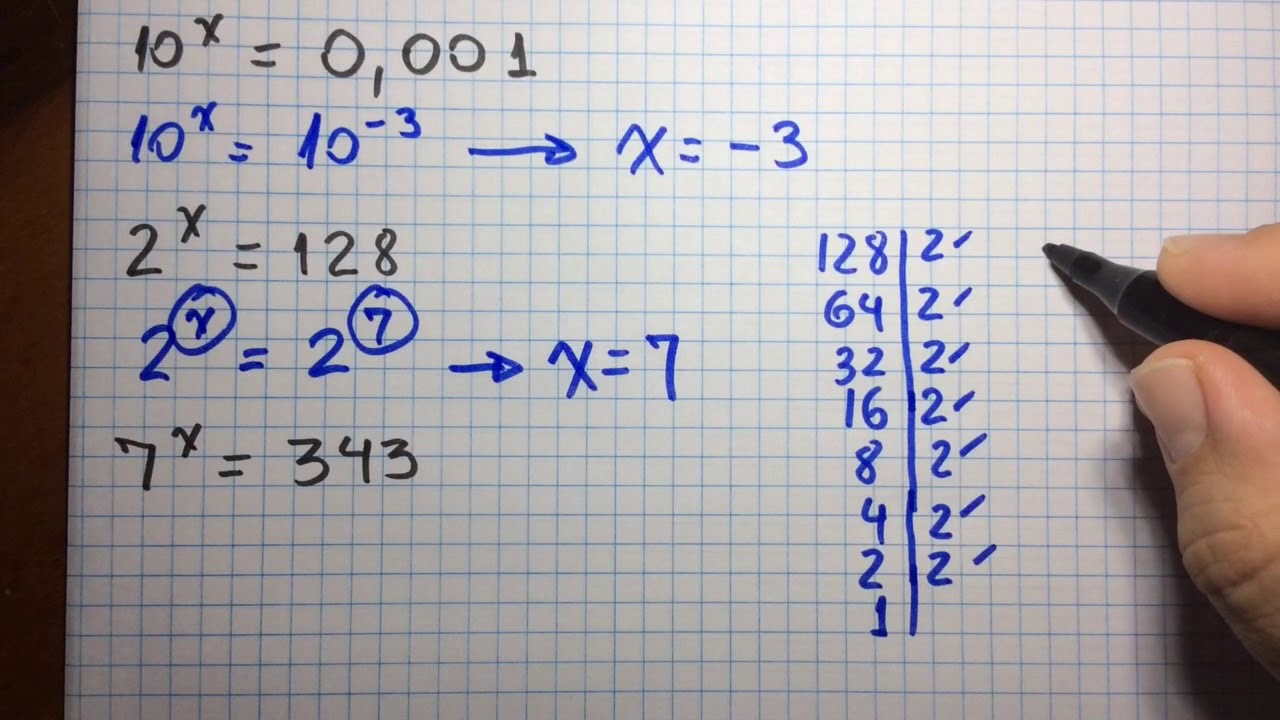 10^x = 0,001
10^x = 10^-3 → x = -3
2^x = 128
2^x = 2^7 → x = 7
7^x = 343
128 | 2
64 | 2
32 | 2
16 | 2
8 | 2
4 | 2
2 | 2
1 |